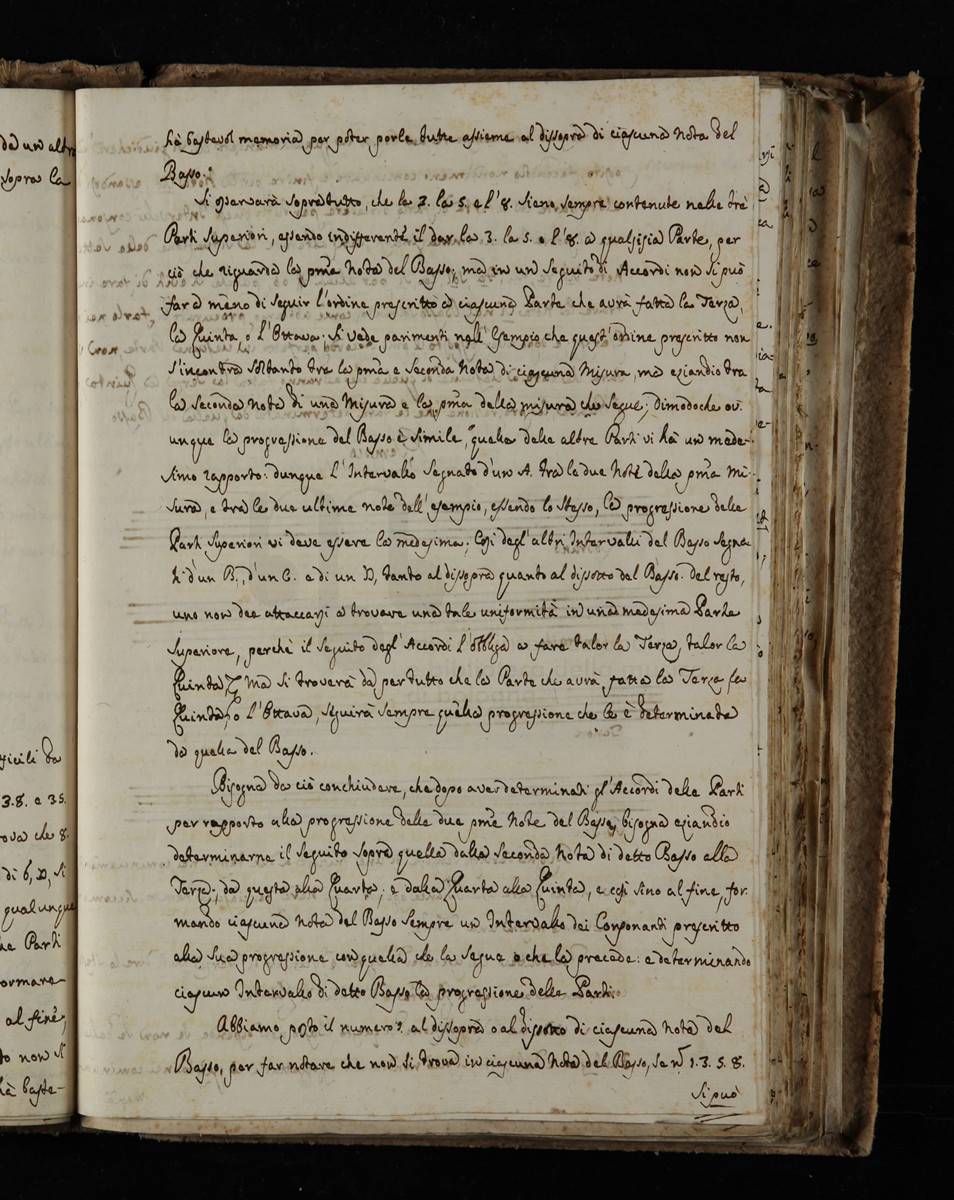 da un altr
sopra la
ficili da
3.8. e 35.
ova che 8.
di 6, D, si
qualunque
he Parti
ormare
al fine,
to non si
hà baste-
hà bastevol memoria per poter porle tutte assieme al dissopra di ciascuna Nota del
Basso.
Si osservarà sopratutto, che la 3. la 5. e l'8. siano sempre contenute nelle trè
Parti Superiori, essendo indifferente il dar la 3. la 5. o l'8. a qualsisia Parte, per
ciò che riguarda la pma Nota del Basso; ma in un Seguito di Accordi non si può
far a meno di seguir l'ordine prescritto a ciascuna Parte che avrà fatta la Terza,
la Quinta, o l'Ottava. Si vede parimenti nell'Esempio che quest'ordine prescritto non
s'incontra soltanto tra la pma e seconda Nota di ciascuna Misura, ma eziandio tra
la seconda Nota di una Misura e la pma della misura che segue; Dimodoche ov-
unque la progressione del Basso è simile, quella delle altre Parti vi hà un mede-
simo rapporto: dunque l'Intervallo Segnato d'un A. tra le due Note della pma Mi-
sura, e tra le due ultime note dell'esempio, essendo lo stesso, la progressione delle
Parti Superiori vi deve essere la medesima; Così degl'altri Intervalli del Basso Segna-
ti d'un B., d'un C. e di un D, tanto al dissopra quanto al dissotto del Basso. Del resto,
uno non dee attaccarsi a trovare una tale uniformità in una medesima Parte
Superiore, perchè il seguito degl'Accordi l'obbliga a fare talor la Terza, talor la
Quinta, &c. Ma si troverà da per tutto che la Parte che avrà fatta la Terza, la
Quinta, o l'Ottava, seguirà sempre quella progressione che le è determinata
da quella del Basso.
Bisogna da ciò conchiudere, che dopo aver determinati gl'Accordi delle Parti
per rapporto alla progressione delle due pme Note del Basso, bisogna eziandio
determinarne il Seguito sopra quella dalla Seconda Nota di detto Basso alla
Terza; da questa alla Quarta; e dalla Quarta alla Quinta, e così sino al fine, for-
mando ciascuna Nota del Basso sempre un Intervallo dei Consonanti prescritto
alla sua progressione con quella che la segue o che la precede: e determinando
ciascun Intervallo di detto Basso la progressione delle Parti.
Abbiamo posto il numero al dissopra o al dissotto di ciascuna Nota del
Basso, per far notare che non si trova in ciascuna Nota del Basso, se nō 1. 3. 5. 8.
si può